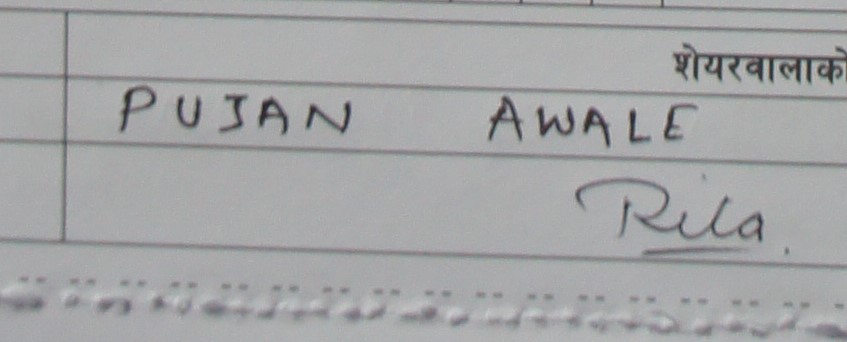 शेयरवालाको
PUJAN AWALE
Rila.